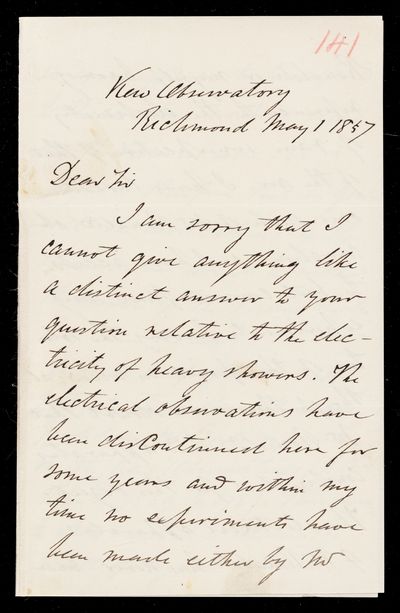 141
Kew Observatory
Richmond May 1 1857
Dear Sir
I am sorry that I
cannot give anything like
a distinct answer to your
question relative to the elec-
tricity of heavy showers. The
electrical observations have
been discontinued here for
some years and within my
time no experiments have
been made either by